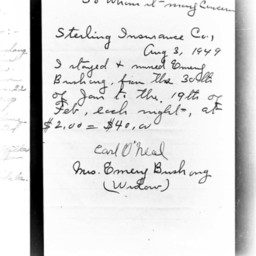 To Whom it may Concern
Sterling Insurance Co,
Aug 3, 1949
I stayed & nursed Emery
Bushong, from the 30th
of Jan to the 19th of
Feb, each night, at
$2.00 = $40.00
Earl O'Neal
Mrs. Emery Bushong
(Widow)